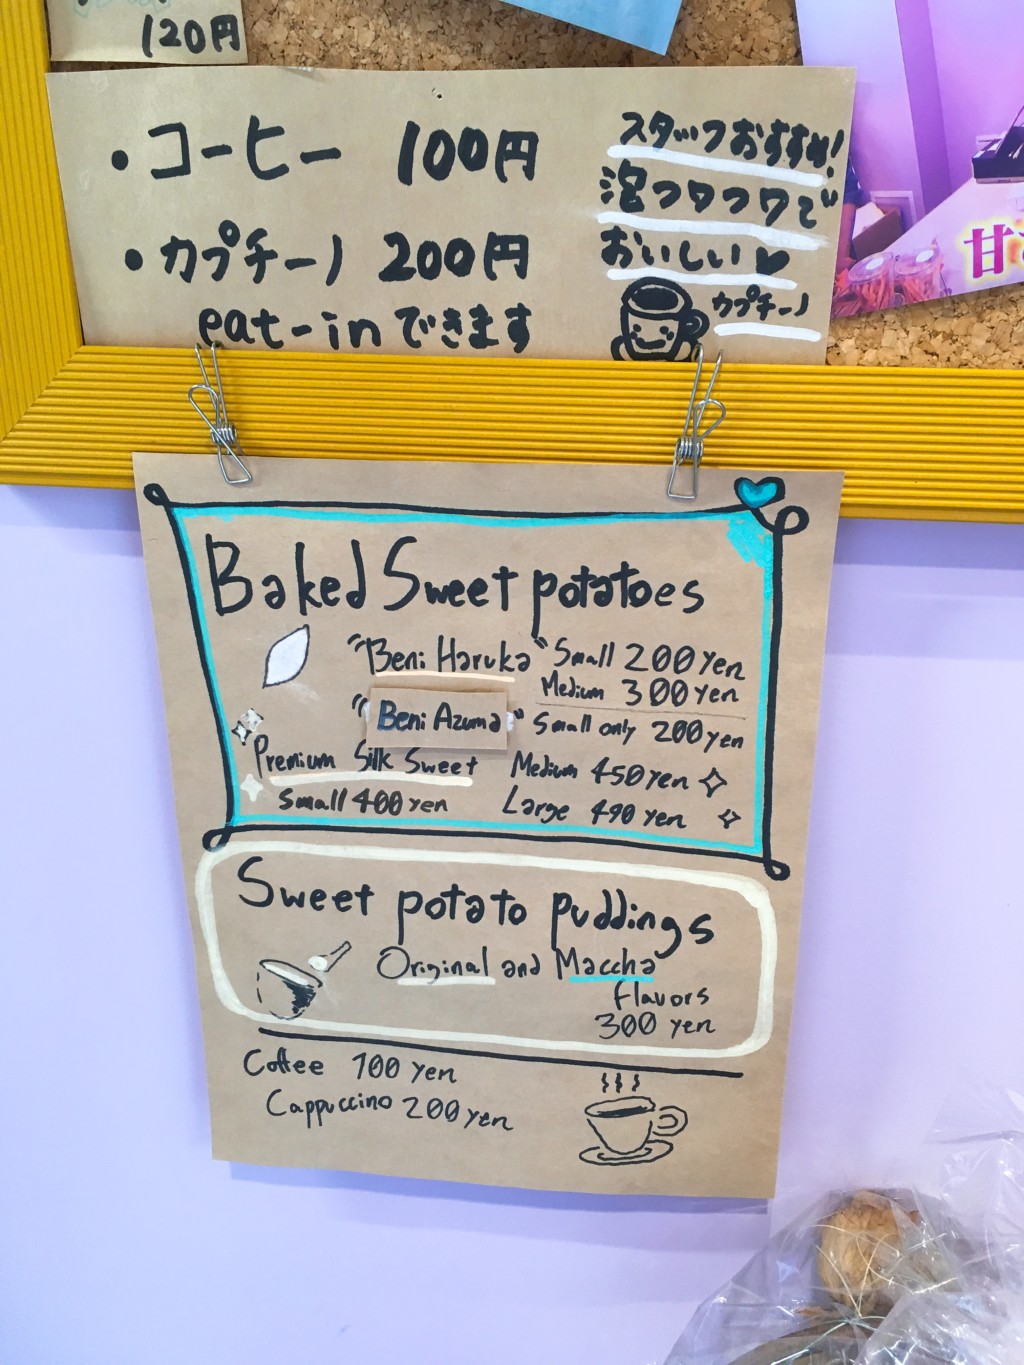 120円
・コーヒー 100円
・カプチーノ 200円
eat-inできます
スタッフおすすめ!
泡フワフワで
おいしい♥
カプチーノ
甘
Baked Sweet potatoes
"Beni Haruka" Small 200 yen
Medium 300 yen
"Beni Azuma" Small only 200 yen
Premium Silk Sweet Medium 450 yen
Small 400 yen Large 490 yen
Sweet potato puddings
Original and Maccha
flavors
300 yen
Coffee 100 yen
Cappuccino 200 yen